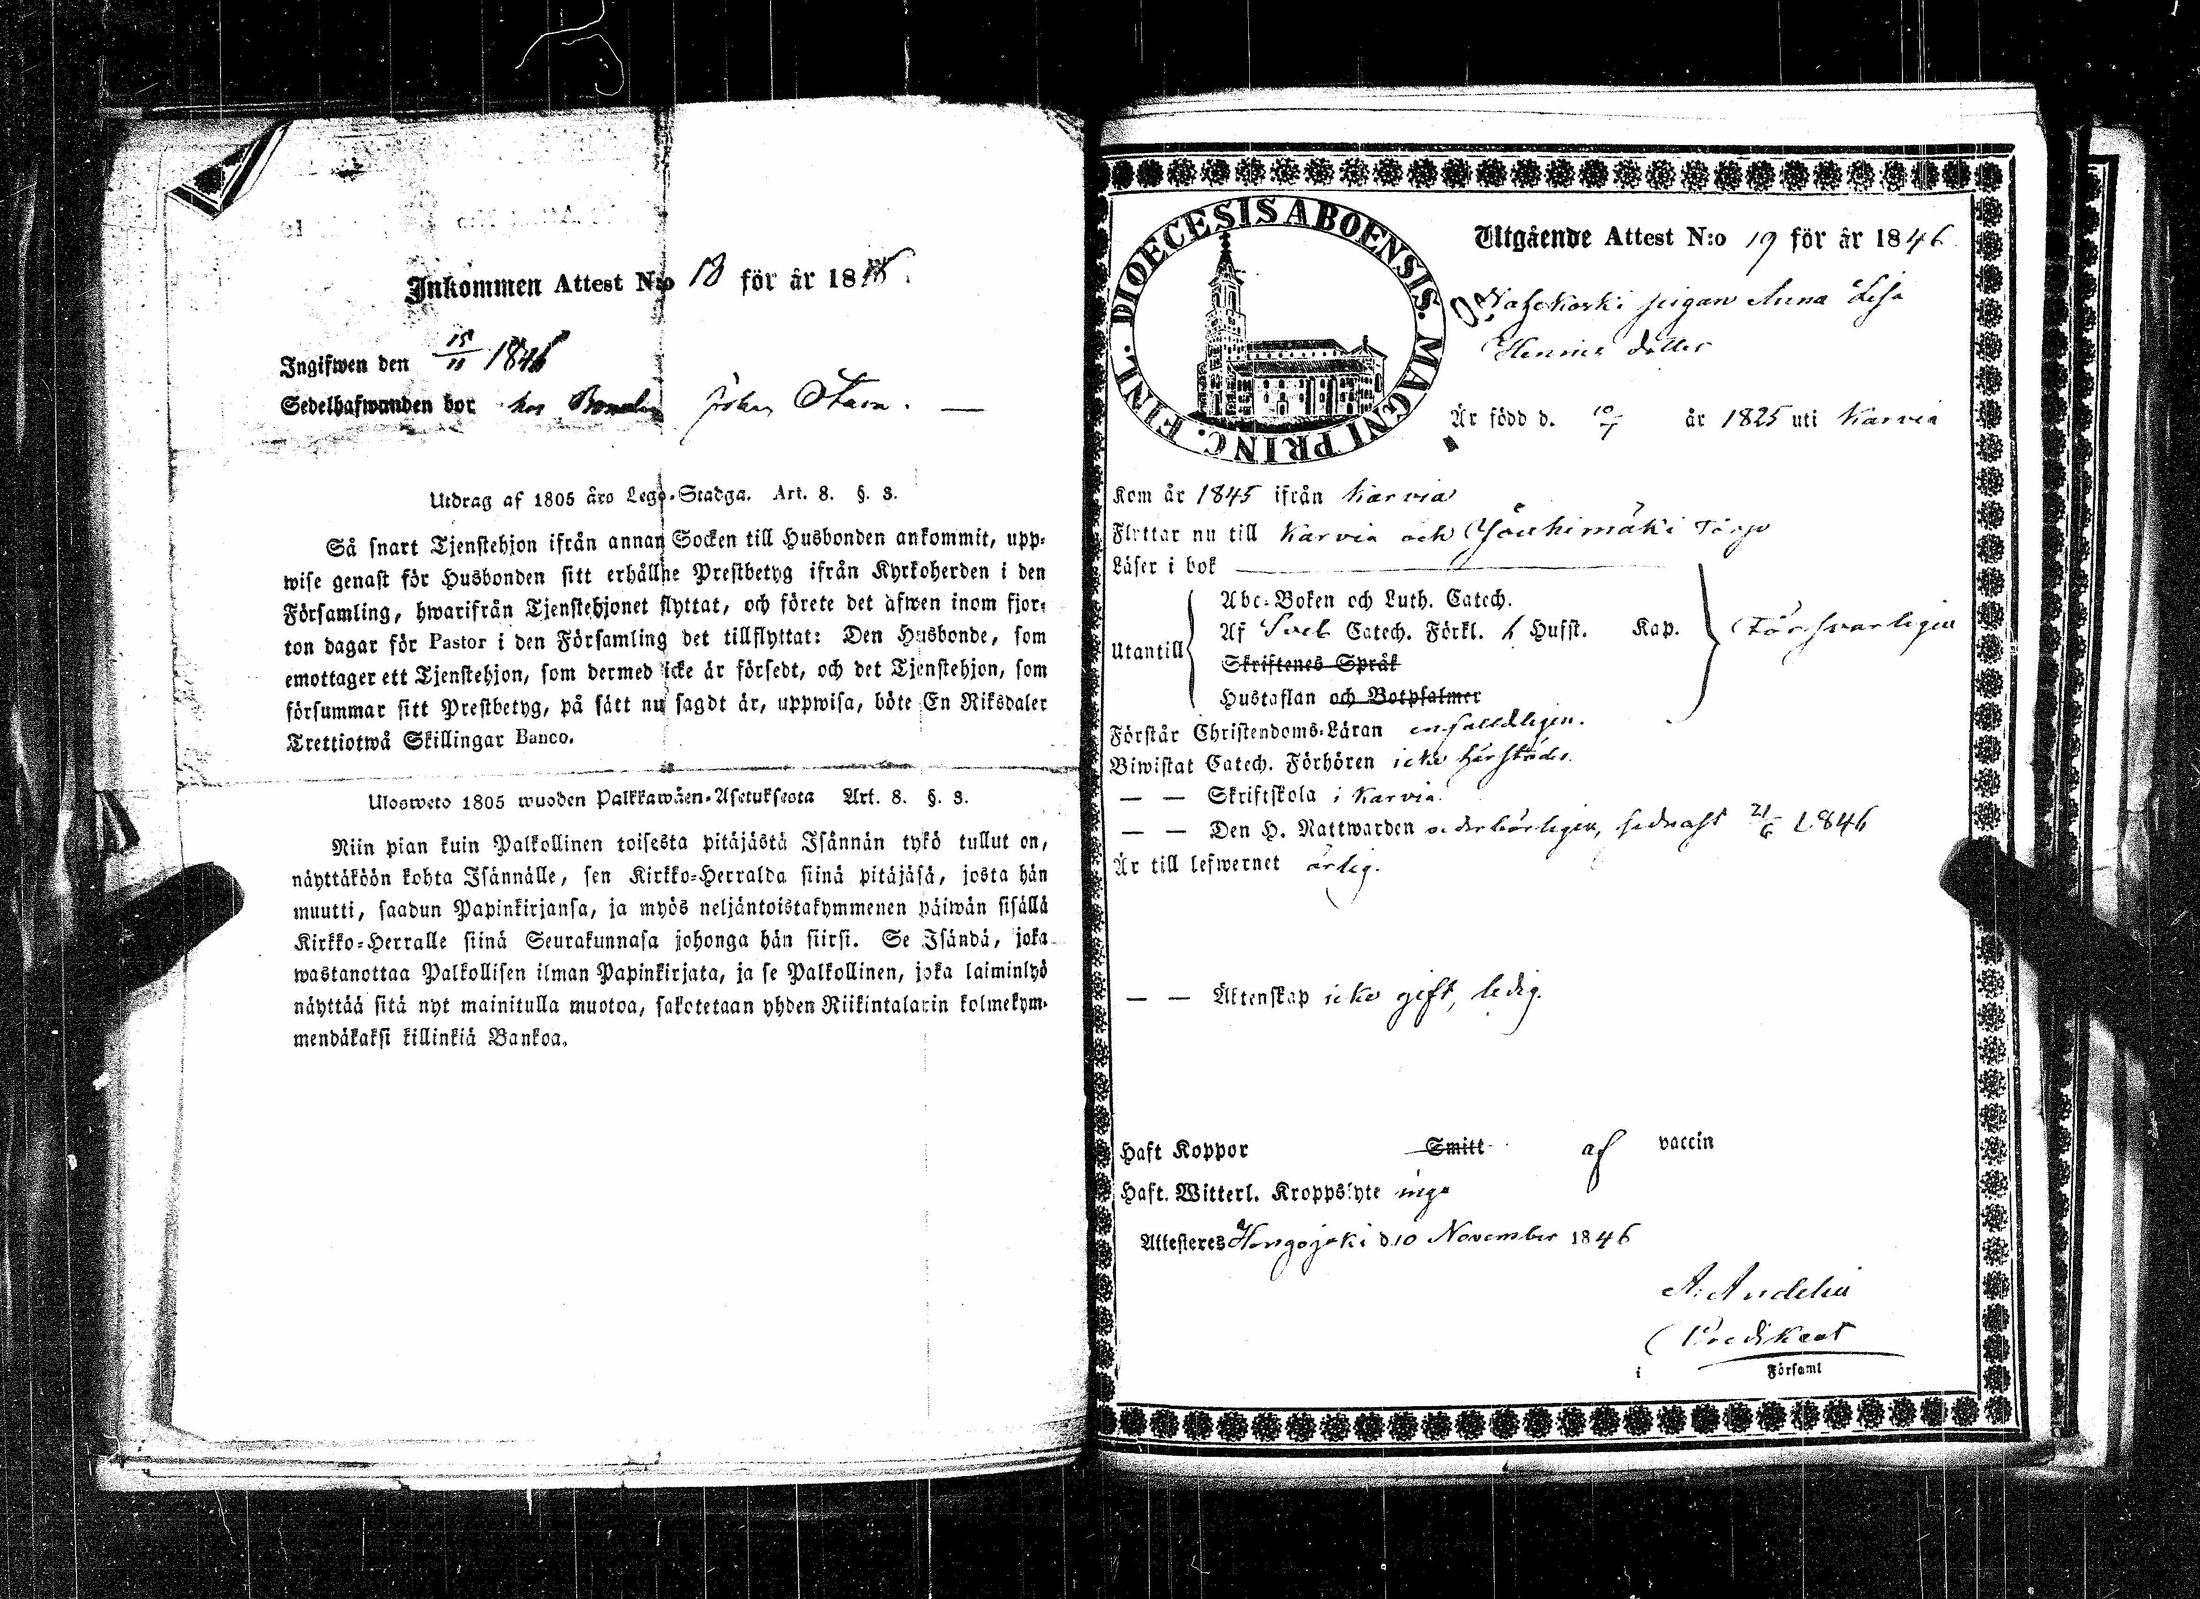 Inkommen Attest N:o 18 för år 1846.
Ingifwen den 15/11 1846
Sedelhafwanden bor hos Johan
Utdrag af 1805 års Lego-Stadga. Art. 8. §. 3.
Så snart Tjenstehjon ifrån annan Socken till Husbonden ankommit, upp-
wise genast för Husbonden sitt erhållne Prestbetyg ifrån Kyrkoherden i den
Församling, hwarifrån Tjenstehjonet flyttat, och förete det äfwen inom fjor-
ton dagar för Pastor i den Församling det tillflyttat: Den Husbonde, som
emottager ett Tjenstehjon, som dermed icke är försedt, och det Tjenstehjon, som
försummar sitt Prestbetyg, på sätt nu sagdt är, uppwisa, böte En Riksdaler
Trettiotwå Skillingar Banco.
Ulosweto 1805 wuoden Palkkawäen-Asetuksesta Art. 8. §. 3.
Niin pian kuin Palkollinen toisesta pitäjästä Isännän tykö tullut on,
näyttäköön kohta Isännälle, sen Kirkko-Herralda siinä pitäjäsä, josta hän
muutti, saadun Papinkirjansa, ja myös neljäntoistakymmenen päiwän sisällä
Kirkko-Herralle siinä Seurakunnasa johonga hän siirsi. Se Isändä, joka
wastanottaa Palkollisen ilman Papinkirjata, ja se Palkollinen, joka laiminlyö
näyttää sitä nyt mainitulla muotoa, sakotetaan yhden Riikintalarin kolmekym-
mendäkaksi killinkiä Bankoa.
DIOECESIS ABOENSIS. MAGNI PRINC. FINL.
Utgående Attest N:o 19 för år 1846
pigan Anna Lisa
Henrics dotter
Är född d. 10/7 år 1825 uti Karvia
Kom år 1845 ifrån Karvia
Flyttar nu till Karvia och Jouhimäki Torp
Läser i bok
Abc-Boken och Luth. Catech.
Af Sveb Catech. Förkl. h Hufst. Kap. Försvarligen
Utantill
Skriftenes Språk
Hustaflan och Botpsalmer
Förstår Christendoms-Läran enfaldeligen.
Biwistat Catech. Förhören icke härstädes.
— — Skriftskola i Karvia
— — Den H. Nattwarden vederbörligen, sednast 21/6 1846
Är till lefwernet ärlig.
— — Äktenskap icke gift, ledig.
Haft Koppor Smitt af vaccin
Haft. Witterl. Kroppslyte inga
Attesteres Hongojoki d. 10 November 1846
A. Andelin
Predikant
i Församl